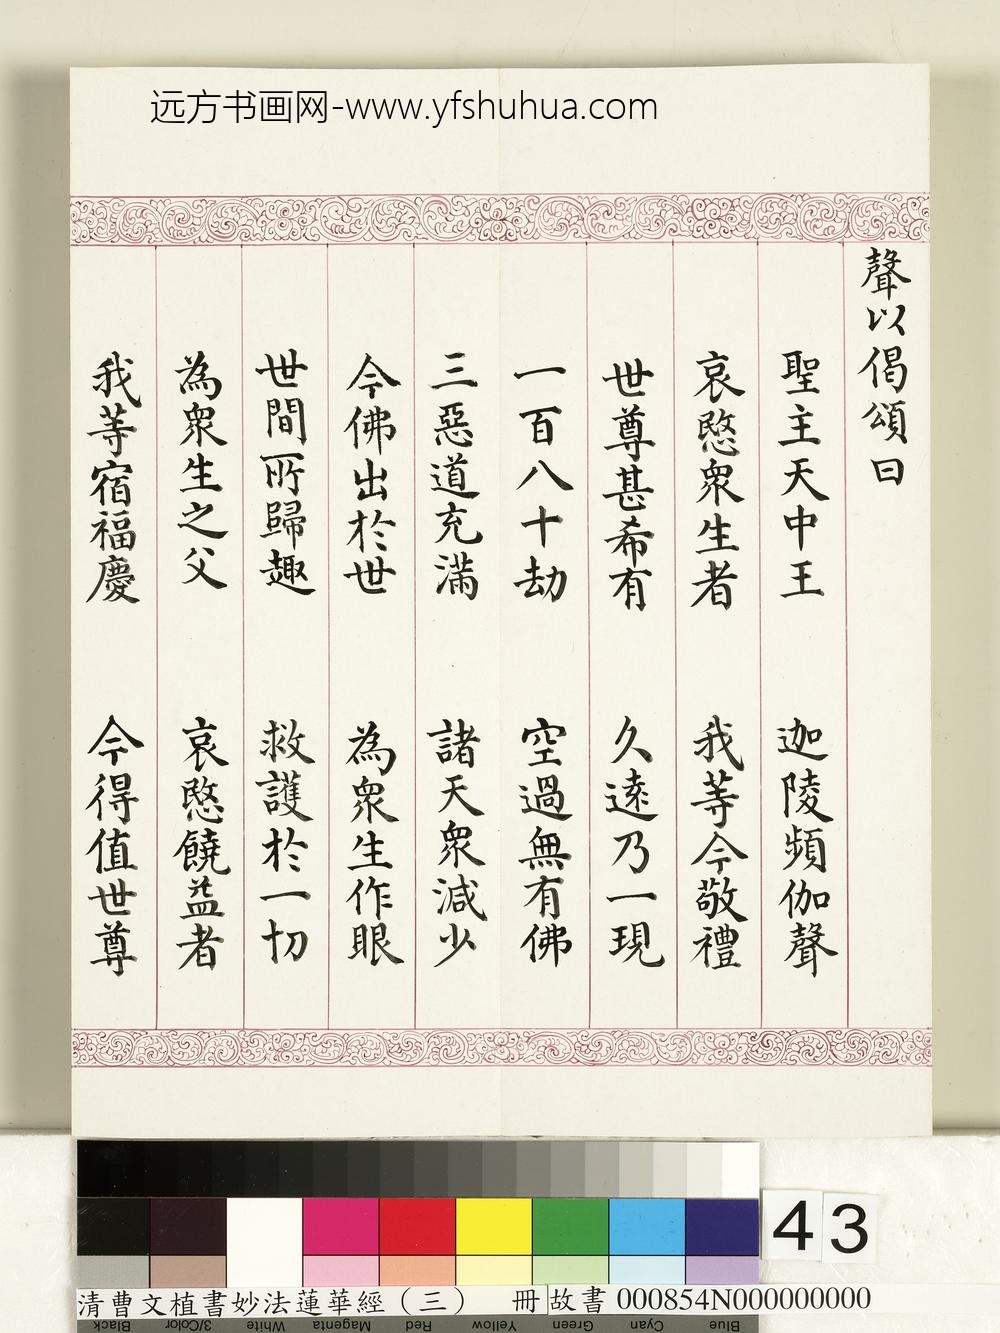 远方书画网-www.yfshuhua.com
聲以偈頌曰
聖主天中王 迦陵頻伽聲
哀愍衆生者 我等今敬禮
世尊甚希有 久遠乃一現
一百八十劫 空過無有佛
三惡道充滿 諸天衆減少
今佛出於世 為衆生作眼
世間所歸趣 救護於一切
為衆生之父 哀愍饒益者
我等宿福慶 今得值世尊
43
清曹文植書妙法蓮華經（三） 冊 故書 000854N000000000
Black 3/Color White Magenta Red Yellow Green Cyan Blue